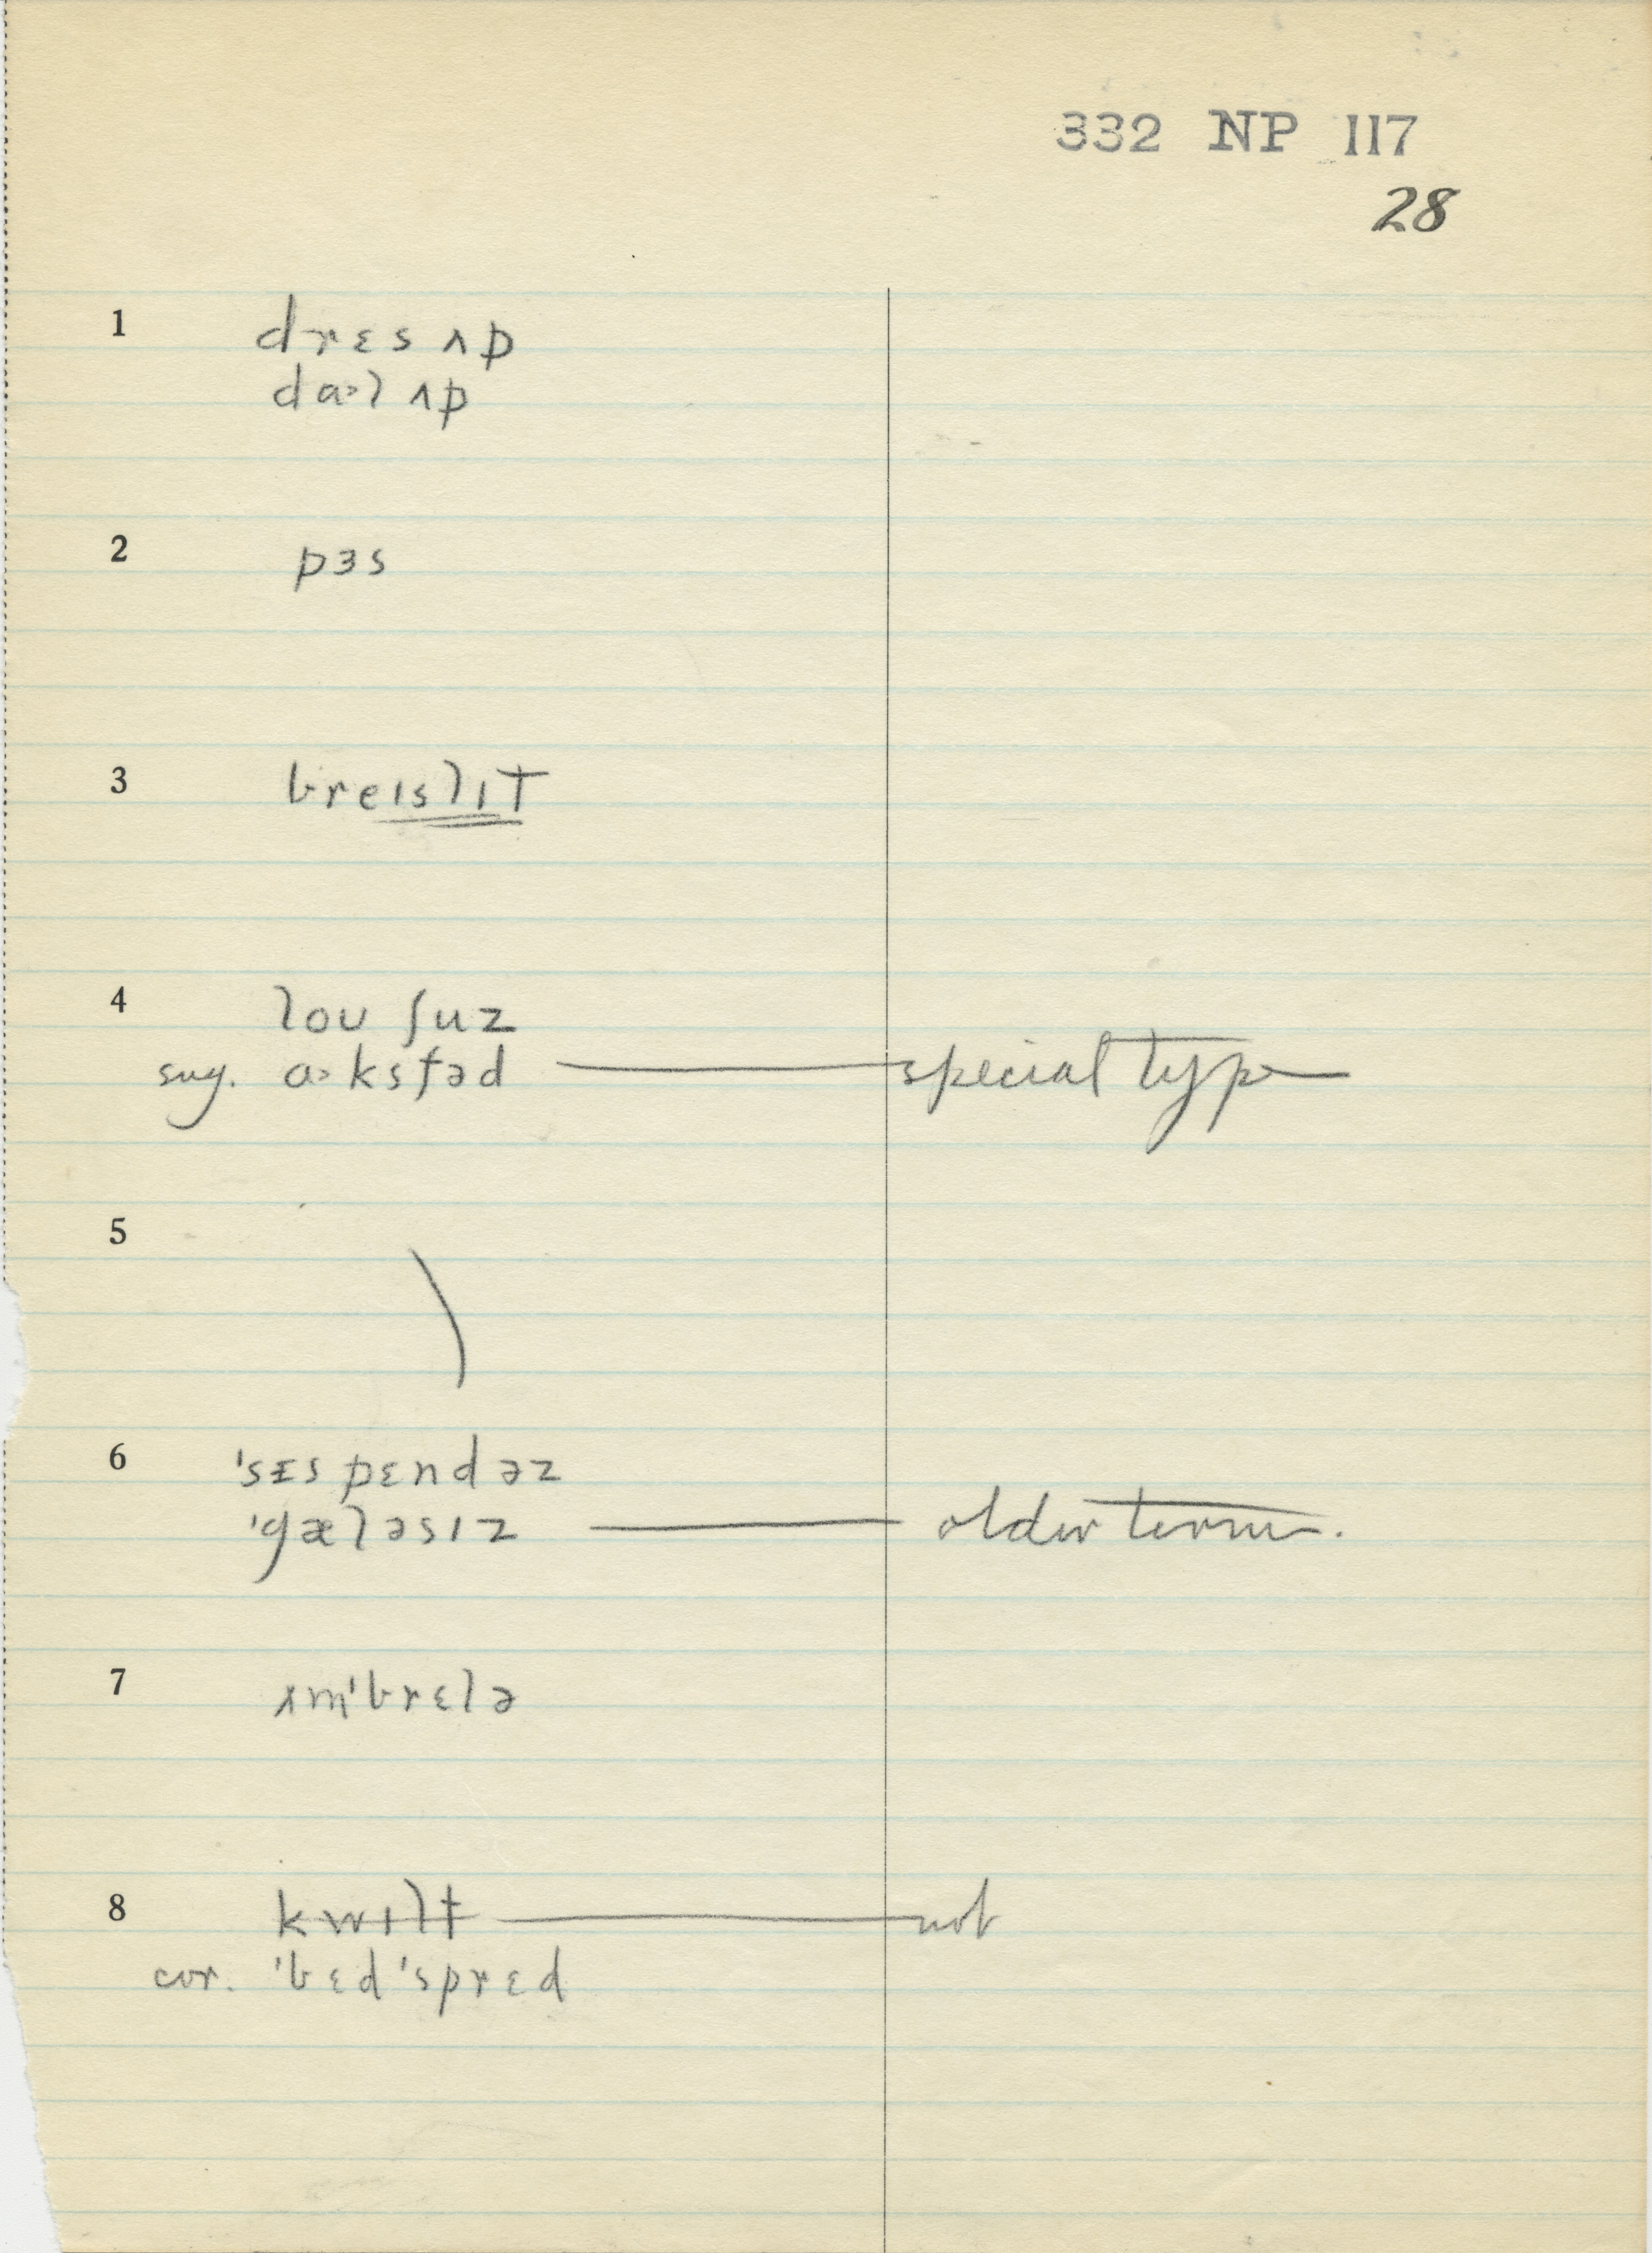 332 NP 117
28
1 drɛs ʌp
dɑ˃l ʌp
2 pɜs
3 breɪslɪt
4 loʊ ʃuz
sug. ɑ˃ksfəd — special type
5
6 'sᵻspɛndəz
'gæləsɪz — older term.
7 ʌm'brɛlə
8 kwɪlt — not
cor. 'bɛd'sprɛd